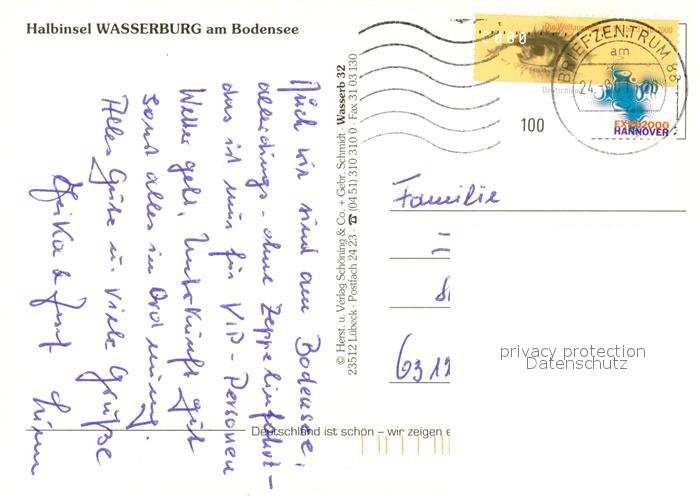 Halbinsel WASSERBURG am Bodensee
Auch wir sind am Bodensee,
allerdings - ohne Zeppelinfahrt -
das ist nur für ViP-Personen
Wetter geht, Unterkunft gut
sonst alles in Ordnung.
Alles Gute u. viele Grüße
© Herst. u. Verlag Schöning & Co. + Gebr. Schmidt · Wasserb 32
23512 Lübeck · Postfach 24 23 · ☎ (04 51) 310 310 0 · Fax 31 03 130
Die Weltaus
2000
Deutschland
100
EXPO2000
HANNOVER
BRIEFZENTRUM 88
am
Familie
6312
privacy protection
Datenschutz
Deutschland ist schön – wir zeigen e